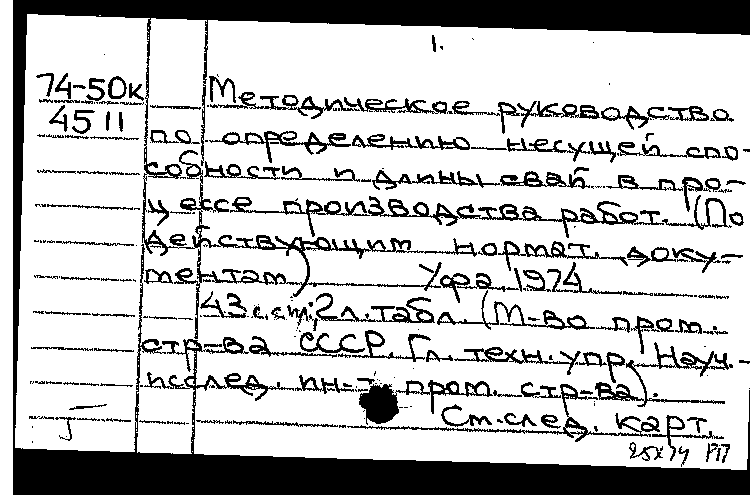 1.
74-50к
4511
Методическое руководство
по определению несущей спо-
собности и длины свай в про-
цессе производства работ. (По
действующим нормат. доку-
ментам). Уфа, 1974.
43 с. с ил; 2 л. табл. (М-во пром.
стр-ва СССР. Гл. техн. упр. Науч.-
исслед. ин-т пром. стр-ва).
См. след. карт.